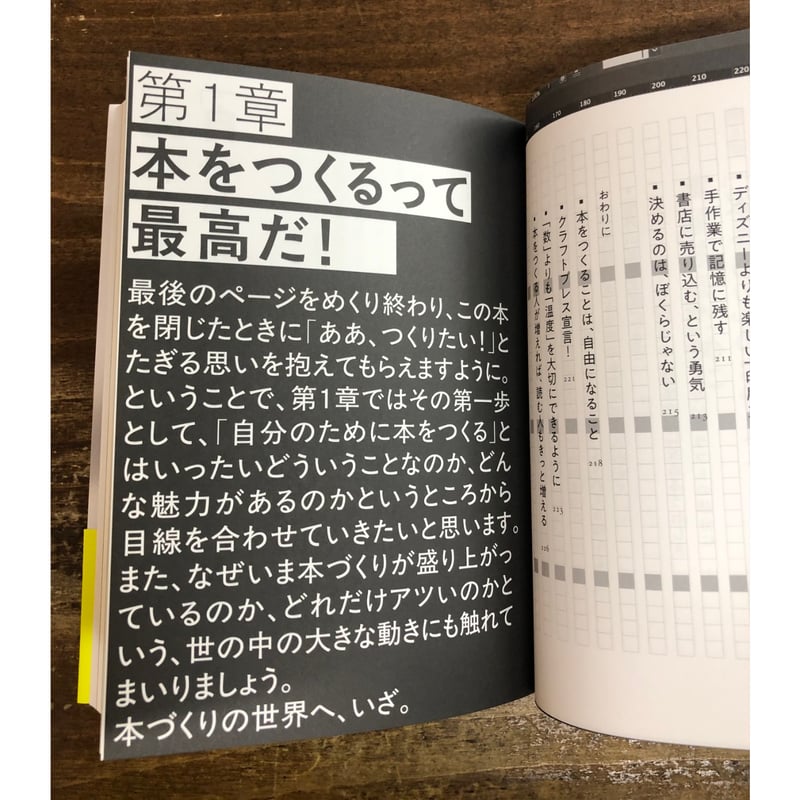 第1章
本をつくるって
最高だ！
最後のページをめくり終わり、この本
を閉じたときに「ああ、つくりたい！」と
たぎる思いを抱えてもらえますように。
ということで、第1章ではその第一歩
として、「自分のために本をつくる」と
はいったいどういうことなのか、どん
な魅力があるのかというところから
目線を合わせていきたいと思います。
また、なぜいま本づくりが盛り上がっ
ているのか、どれだけアツいのかと
いう、世の中の大きな動きにも触れて
まいりましょう。
本づくりの世界へ、いざ。
180 190 200 210 220
ディズニーよりも楽しい
▪手作業で記憶に残す 211
▪書店に売り込む、という勇気 213
▪決めるのは、ぼくらじゃない 215
おわりに
▪本をつくることは、自由になること 218
▪クラフトプレス宣言！ 221
▪「数」よりも「温度」を大切にできるように 223
▪本をつくる人が増えれば、読む人もきっと増える 226